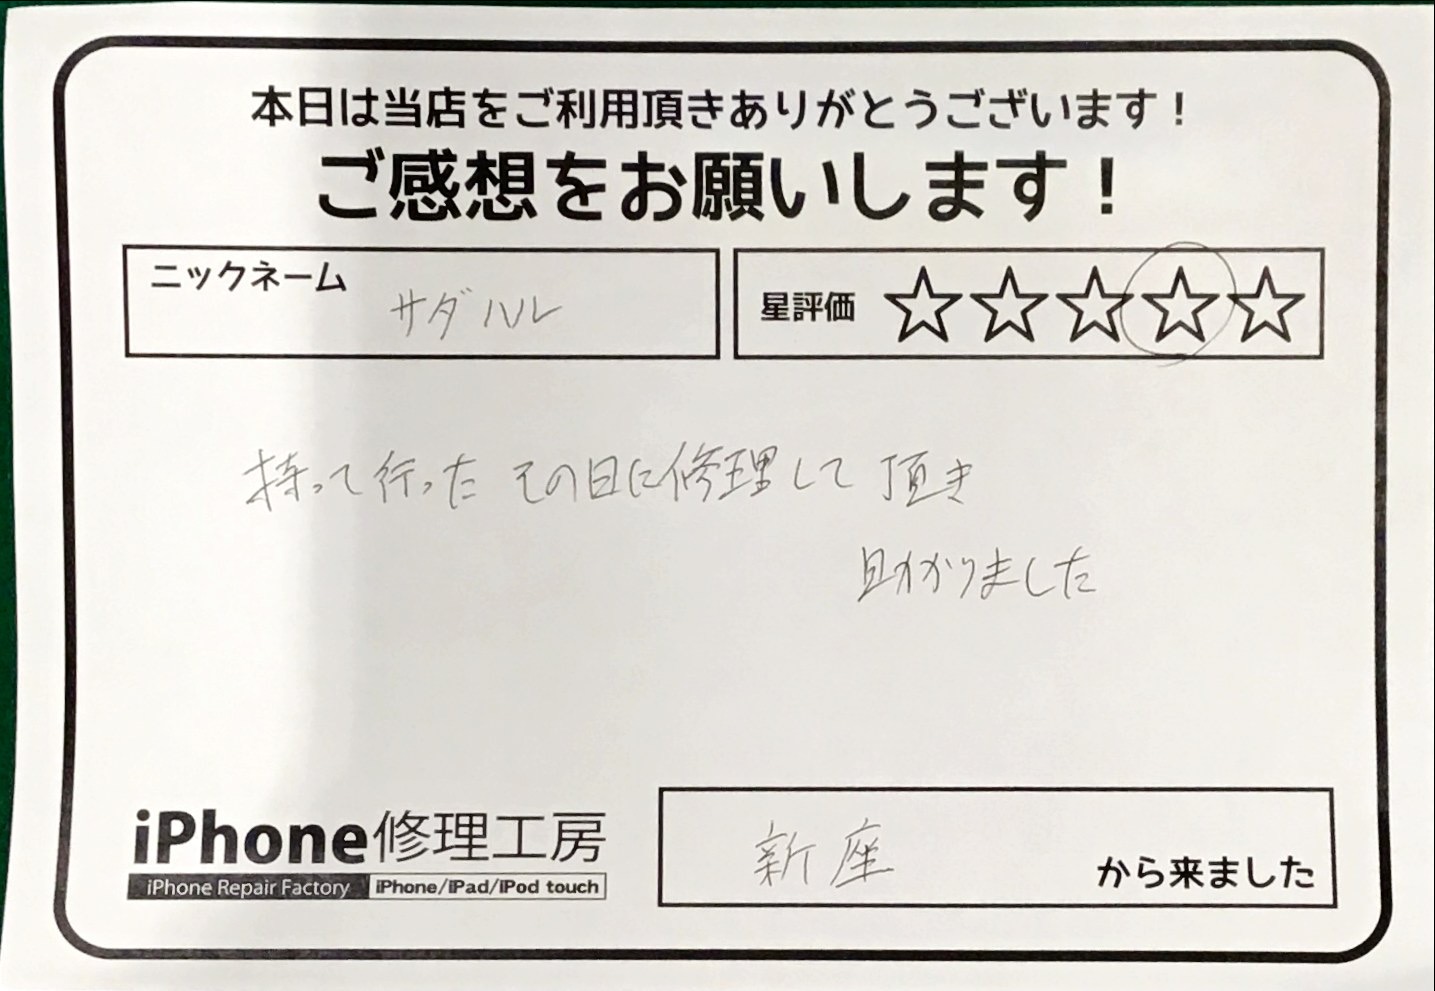 本日は当店をご利用頂きありがとうございます！
ご感想をお願いします！
ニックネーム サダハル
星評価 ☆☆☆☆☆
持って行った その日に修理して 頂き
助かりました
iPhone修理工房
iPhone Repair Factory iPhone/iPad/iPod touch
新座 から来ました